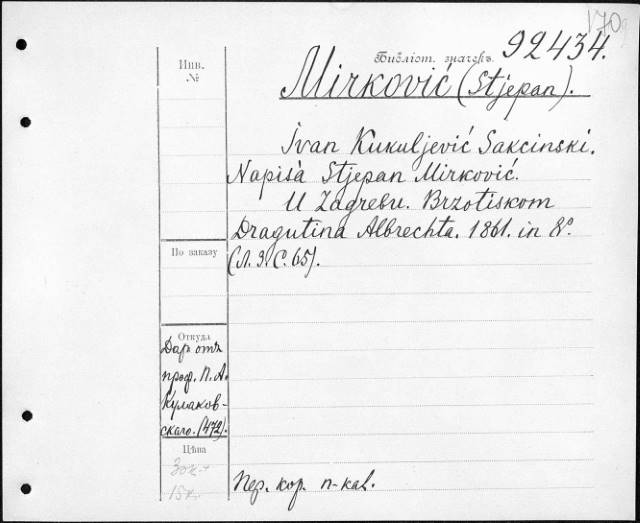 170
Библіот. значекъ 92434.
Инв.
№
Mirković (Stjepan).
Ivan Kukuljević Sakcinski.
Napisa Stjepan Mirković.
U Zagrebu. Brzotiskom
Dragutina Albrechta. 1861. in 8°.
По заказу
(Л. 3. С. 65).
Откуда
Даръ отъ
проф. П. А.
Кулаков-
скаго. (472).
Цѣна
30к.
15к.
Пер. кор. п-каl.